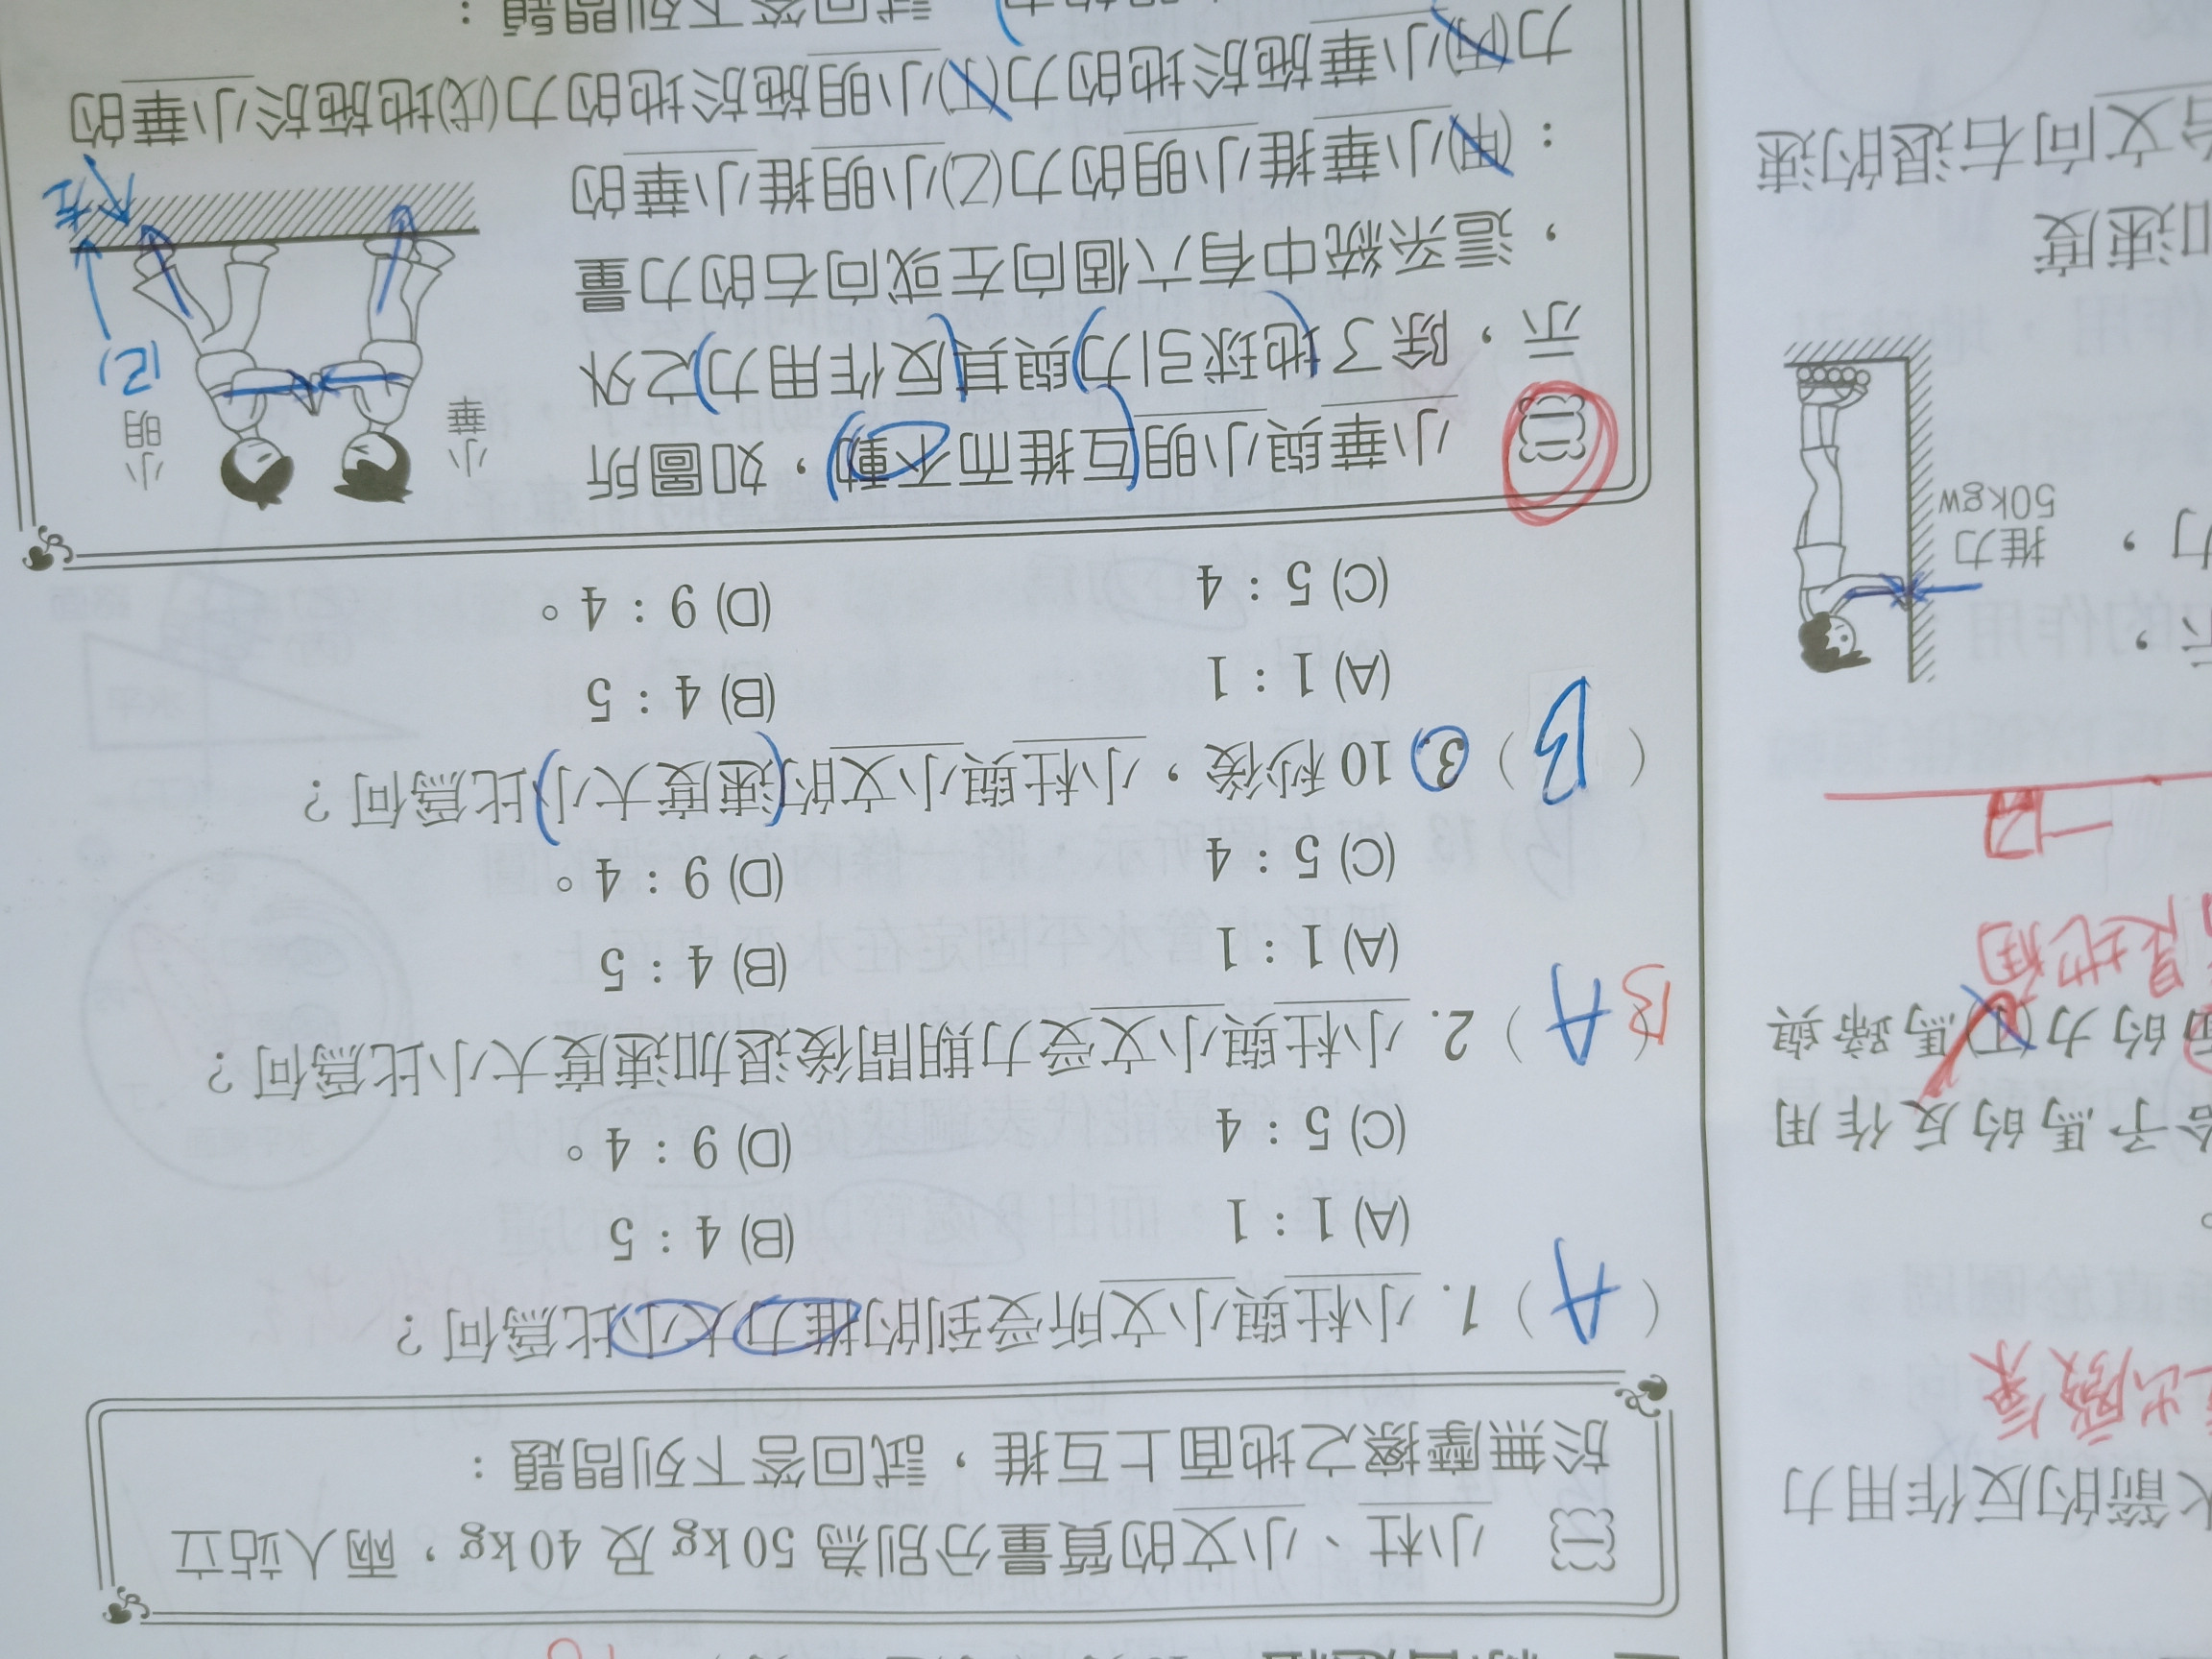 ㈠ 小杜、小文的質量分別為50kg及40kg，兩人站立
於無摩擦之地面上互推，試回答下列問題：
( A ) 1. 小杜與小文所受到的推力大小比為何？
(A) 1：1 (B) 4：5
(C) 5：4 (D) 9：4。
B ( A ) 2. 小杜與小文受力期間後退加速度大小比為何？
(A) 1：1 (B) 4：5
(C) 5：4 (D) 9：4。
( B ) 3. 10秒後，小杜與小文的(速度大小)比為何？
(A) 1：1 (B) 4：5
(C) 5：4 (D) 9：4。
㈡ 小華與小明(互推而不動)，如圖所
示，除了(地球引力)與其(反作用力)之外
，這系統中有六個向左或向右的力量
：(甲)小華推小明的力(乙)小明推小華的
力(丙)小華施於地的力(丁)小明施於地的力(戊)地施於小華的
試回答下列問題：
小華
小明
(己)
左
火箭的反作用力
給予馬的反作用
的力(丁)馬蹄與
是地面
推力
50kgw
加速度
文向右退的速